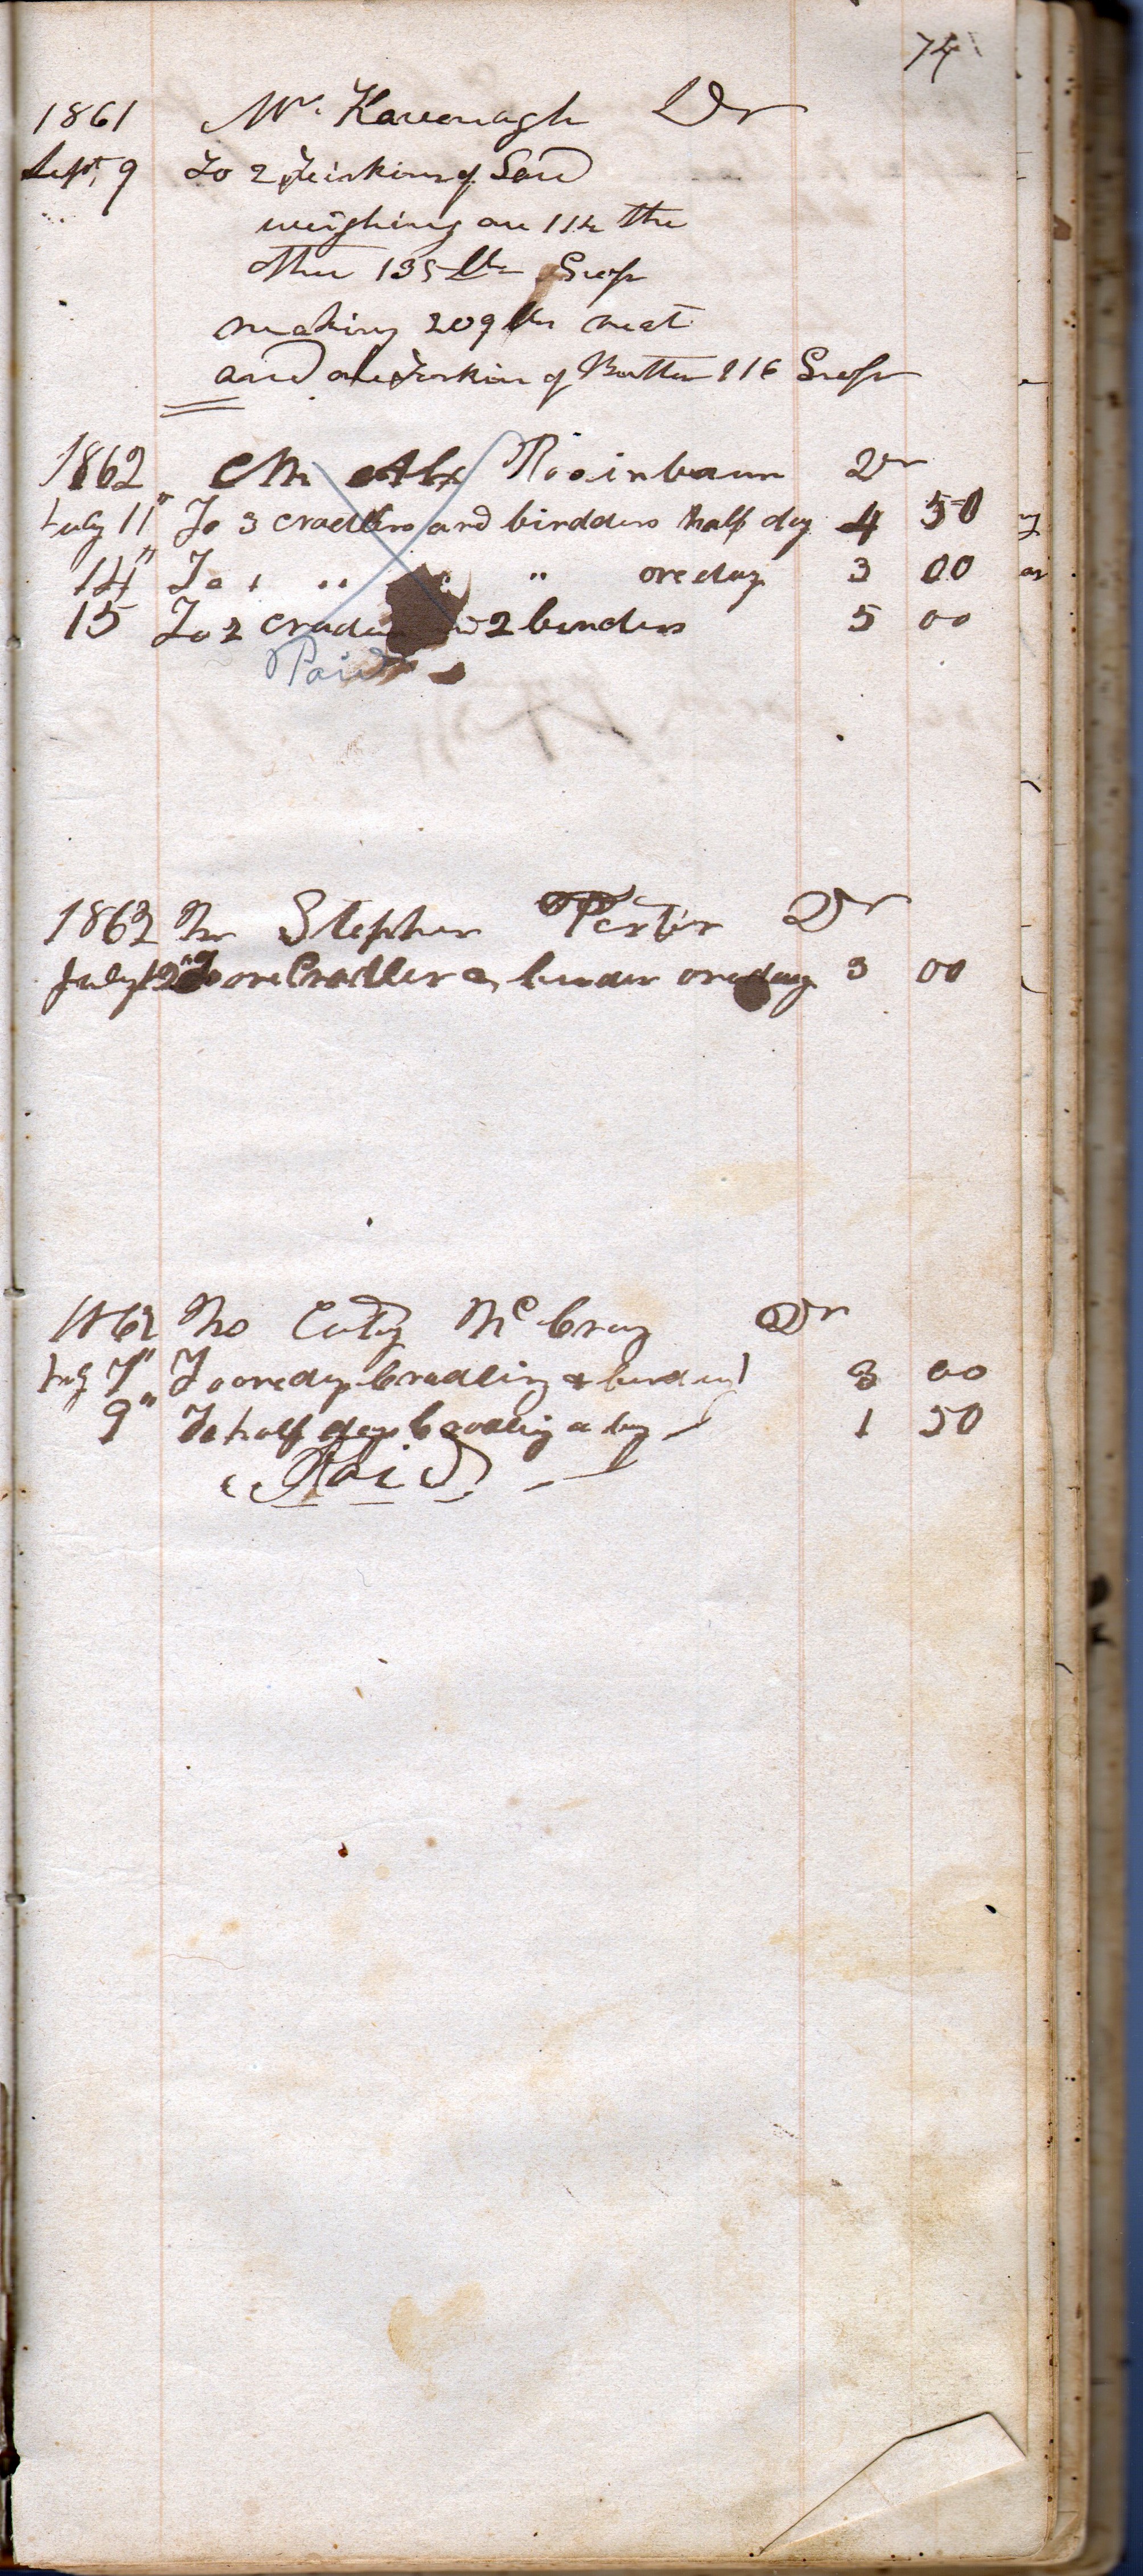 74
1861 Mr. Kavenagh Dr
Sept, 9 To 2 feirkins of Lard
weighing on 114 the
other 135 lbs Gross
making 209 lbs neat
and one Forkin of Butter 116 Gross
1862 Mr Alx Dr
July 11" To 3 cradlers and birdders half day 4 50
14" To 1 " " oreday 3 00
15 To 2 2 binders 5 00
Paid
1862 Mr Stephen Porter Dr
July 12" To ore Cradler & binder oreday 3 00
1862 Mr Caty McCray Dr
July 7" To oreday Cradling & burding 3 00
9" To half day Cradlig a 1 50
Paid